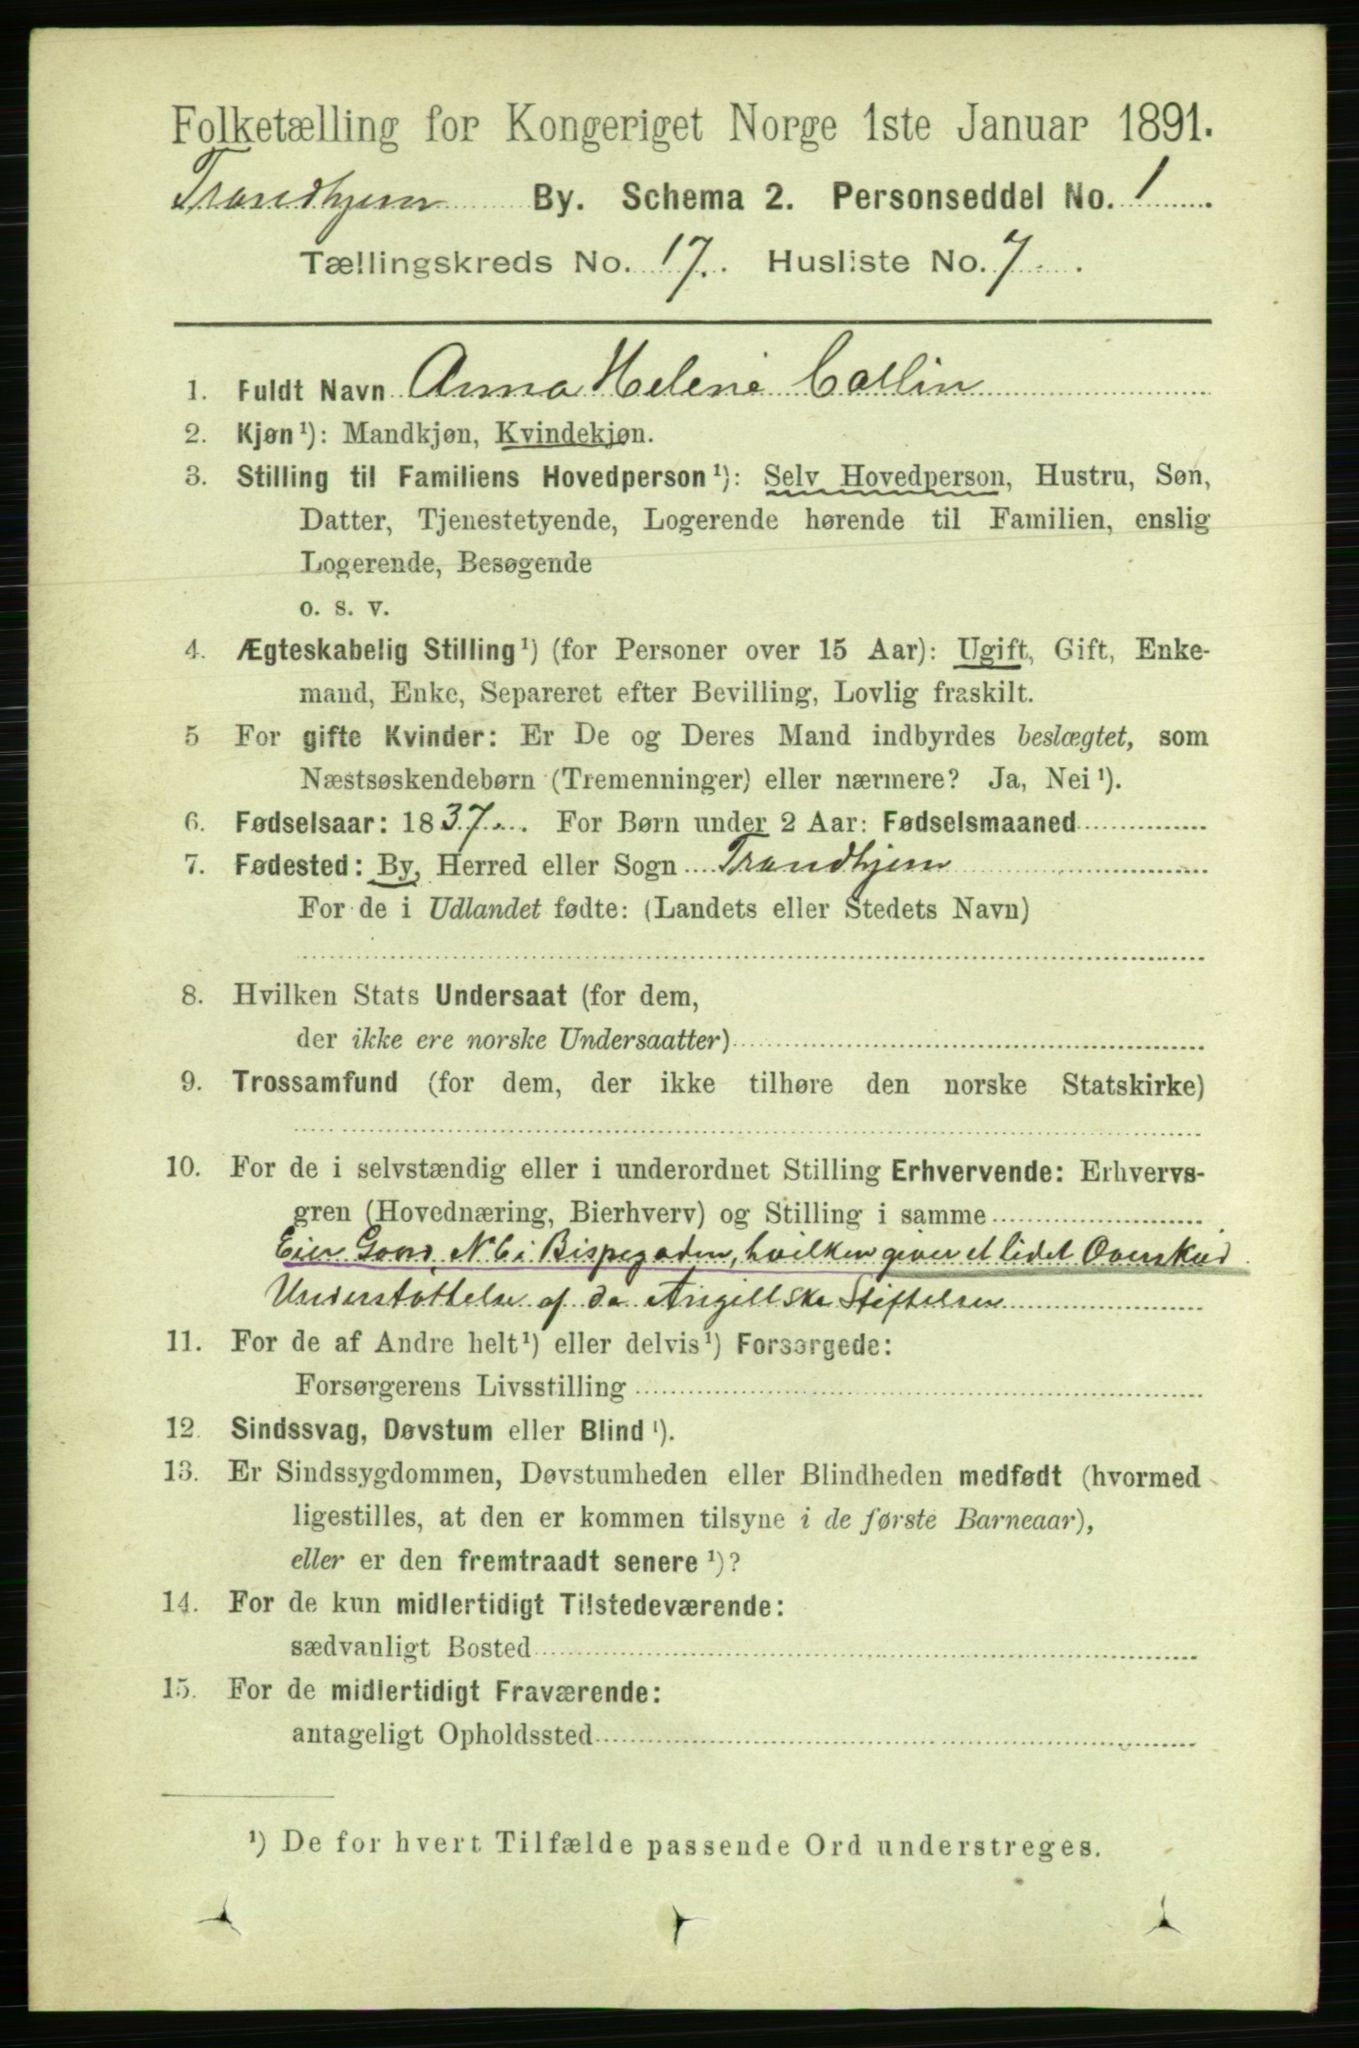 Folketælling for Kongeriget Norge 1ste Januar 1891.
Trondhjem By. Schema 2. Personseddel No. 1
Tællingskreds No. 17. Husliste No. 7
1. Fuldt Navn Anna Helene Collin
2. Kjøn¹): Mandkjøn, Kvindekjøn.
3. Stilling til Familiens Hovedperson¹): Selv Hovedperson, Hustru, Søn,
Datter, Tjenestetyende, Logerende hørende til Familien, enslig
Logerende, Besøgende
o. s. v.
4. Ægteskabelig Stilling¹) (for Personer over 15 Aar): Ugift, Gift, Enke-
mand, Enke, Separeret efter Bevilling, Lovlig fraskilt.
5 For gifte Kvinder: Er De og Deres Mand indbyrdes beslægtet, som
Næstsøskendebørn (Tremenninger) eller nærmere? Ja, Nei¹).
6. Fødselsaar: 1837. For Børn under 2 Aar: Fødselsmaaned
7. Fødested: By, Herred eller Sogn Trondhjem
For de i Udlandet fødte: (Landets eller Stedets Navn)
8. Hvilken Stats Undersaat (for dem,
der ikke ere norske Undersaatter)
9. Trossamfund (for dem, der ikke tilhøre den norske Statskirke)
10. For de i selvstændig eller i underordnet Stilling Erhvervende: Erhvervs-
gren (Hovednæring, Bierhverv) og Stilling i samme
Eier Gaard N 6 i Bispegaden, hvilken giver et lidet Overskud
Understøttelse af de Angellske Stiftelser
11. For de af Andre helt¹) eller delvis¹) Forsørgede:
Forsørgerens Livsstilling
12. Sindssvag, Døvstum eller Blind¹).
13. Er Sindssygdommen, Døvstumheden eller Blindheden medfødt (hvormed
ligestilles, at den er kommen tilsyne i de første Barneaar),
eller er den fremtraadt senere¹)?
14. For de kun midlertidigt Tilstedeværende:
sædvanligt Bosted
15. For de midlertidigt Fraværende:
antageligt Opholdssted
¹) De for hvert Tilfælde passende Ord understreges.